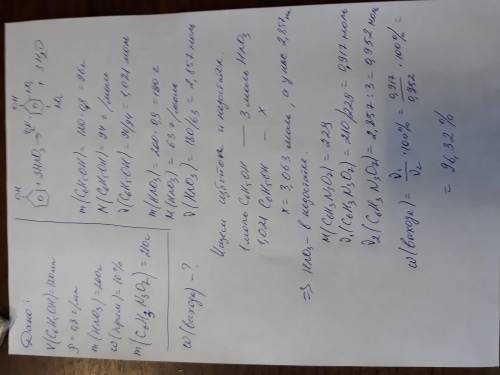 Дано:
V(C₆H₅OH) = 120 мл
ρ = 0,8 г/мл
m(HNO₃) = 200 г
ω(прим) = 10%
m(C₆H₃N₃O₇) = 210 г
ω(выхода) - ?
+ 3HNO₃ → + 3H₂O
OH
OH
NO₂
NO₂
m(C₆H₅OH) = 120 · 0,8 = 96 г
M(C₆H₅OH) = 94 г/моль
ν(C₆H₅OH) = 96/94 = 1,021 моль
m(HNO₃) = 200 · 0,9 = 180 г
M(HNO₃) = 63 г/моль
ν(HNO₃) = 180/63 = 2,857 моль
Ищем избыток и недостаток.
1 моль C₆H₅OH — 3 моль HNO₃
1,021 C₆H₅OH — x
x = 3,063 моль, а у нас 2,857
=> HNO₃ - в недостатке.
M(C₆H₃N₃O₇) = 229
ν₁(C₆H₃N₃O₇) = 210/229 = 0,917 моль
ν₂(C₆H₃N₃O₇) = 2,857 : 3 = 0,952 моль
ω(выхода) = ν₁/ν₂ · 100% = 0,917/0,952 · 100% =
= 96,32%